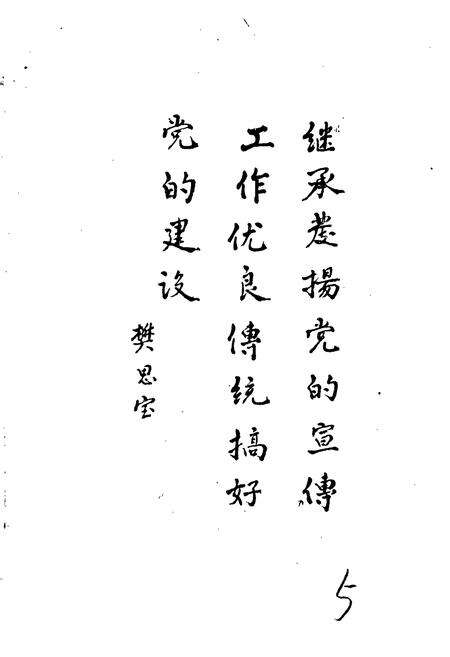 继承發揚党的宣傳
工作优良傳统搞好
党的建设
樊思宝
5